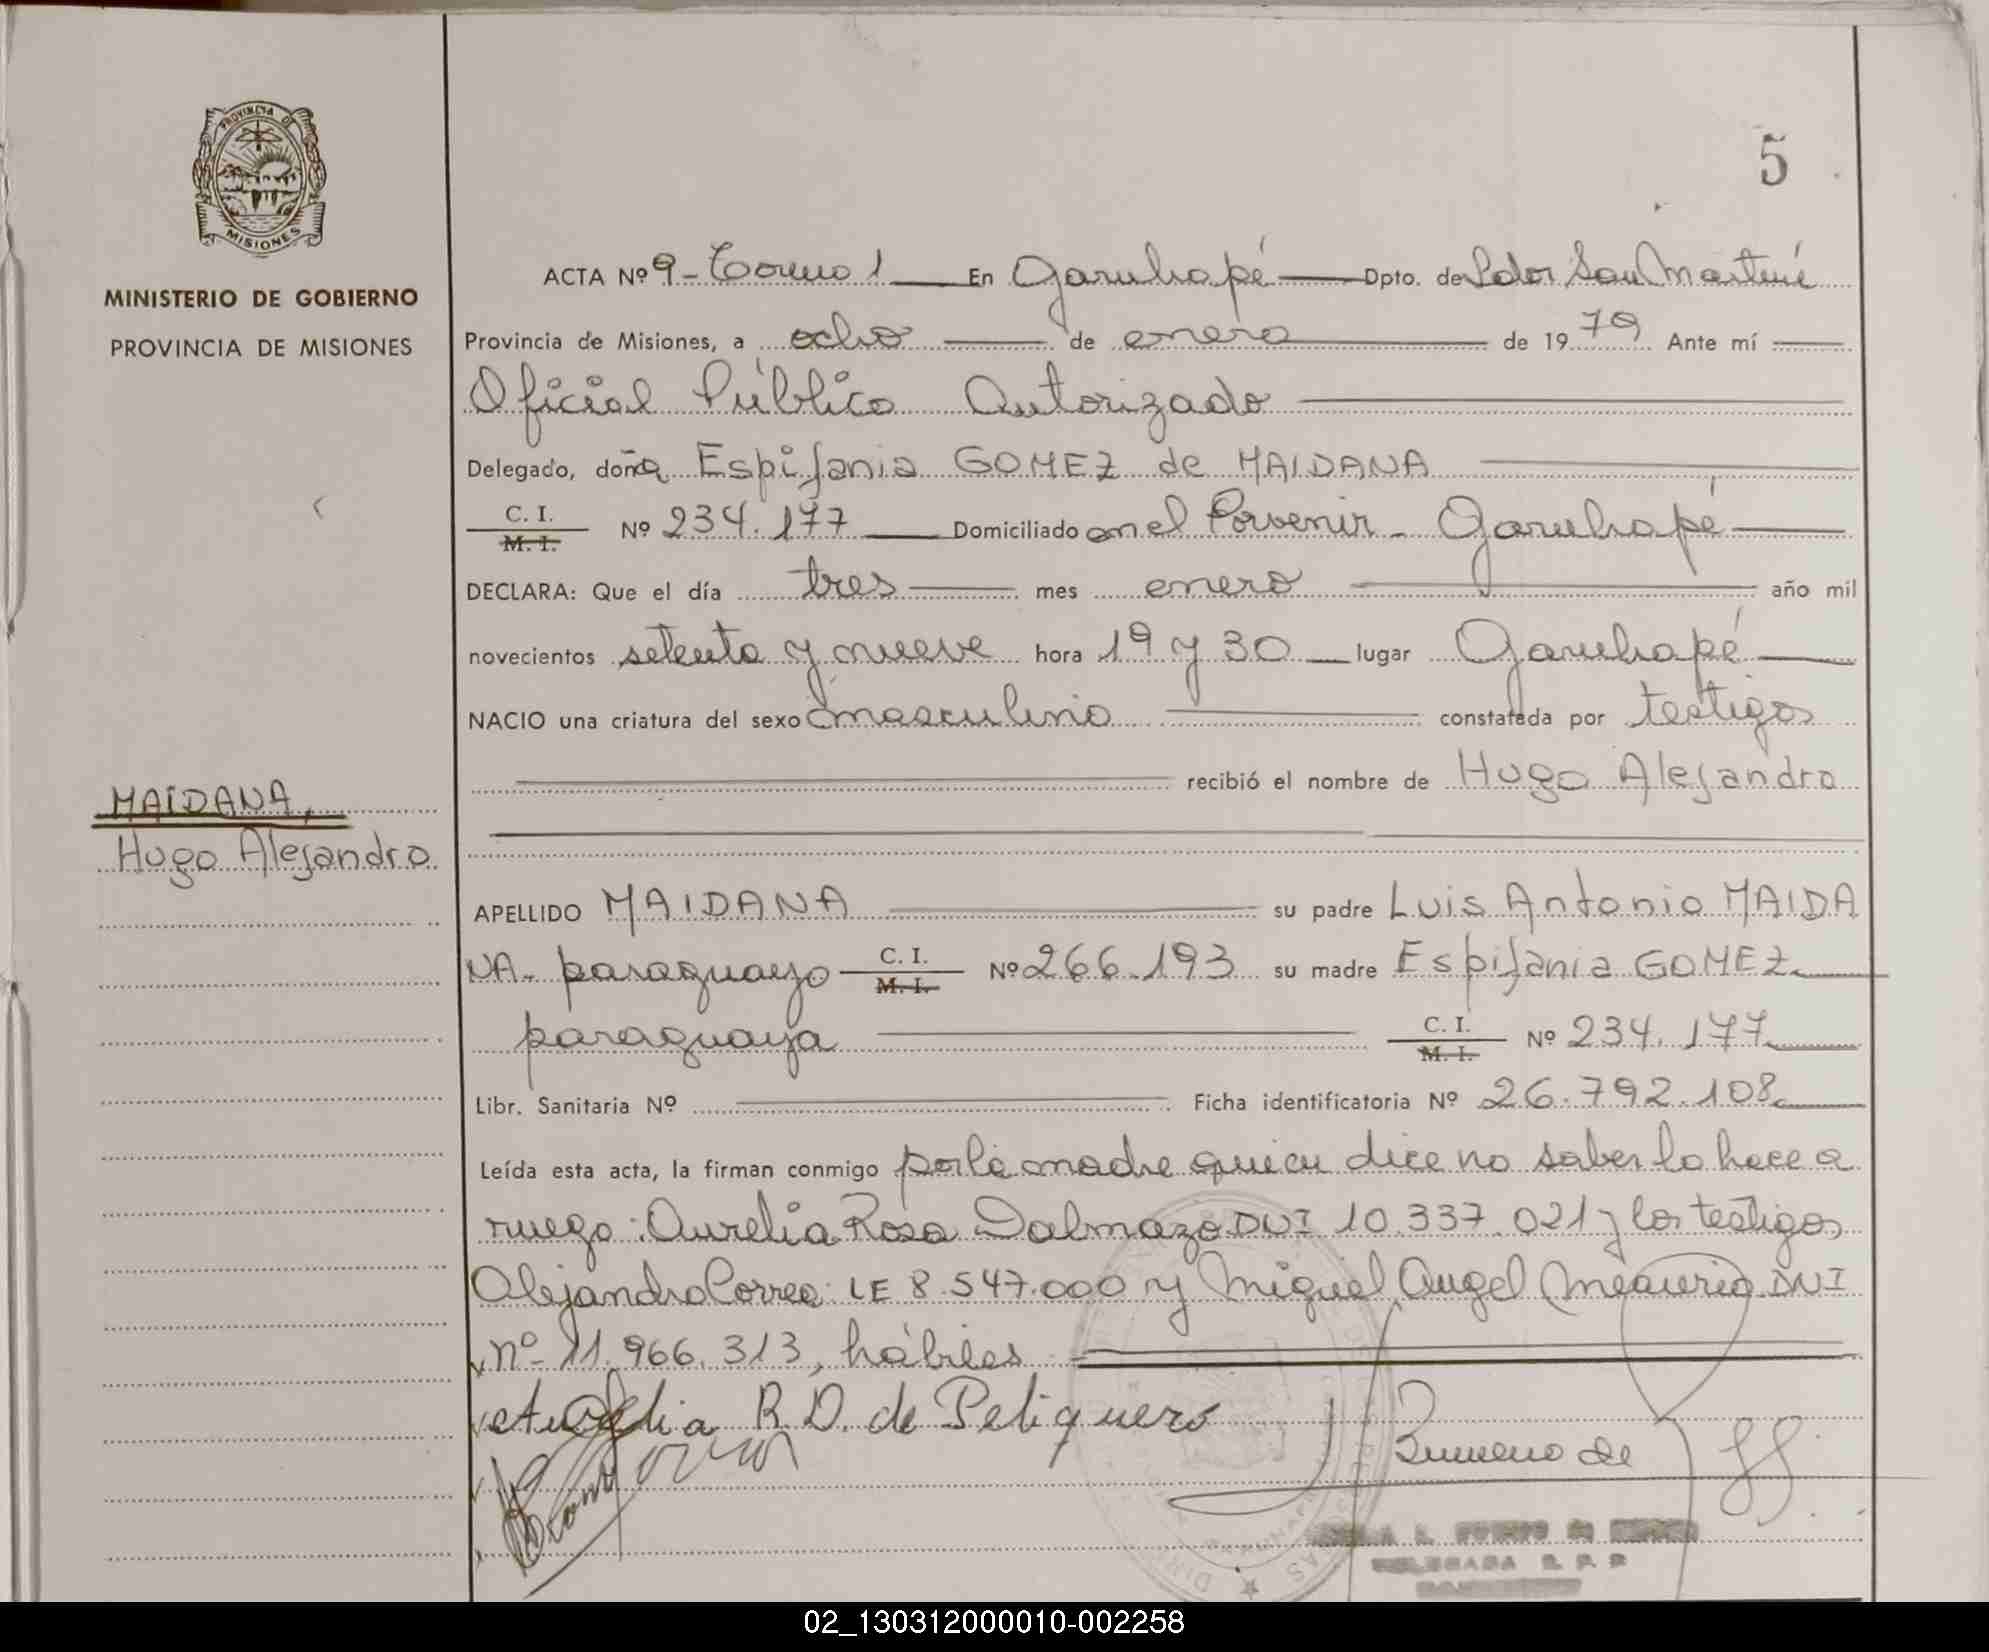 PROVINCIA DE
MISIONES
MINISTERIO DE GOBIERNO
PROVINCIA DE MISIONES
5
ACTA Nº 9 - Tomo 1 En Garuhapé Dpto. de Ldor San Martín
Provincia de Misiones, a ocho de enero de 1979 Ante mí
Oficial Público Autorizado
Delegado, doña Espifania GOMEZ de MAIDANA
C. I. M. I. Nº 234.177 Domiciliado en el Porvenir - Garuhapé
DECLARA: Que el día tres mes enero año mil
novecientos setenta y nueve hora 19 y 30 lugar Garuhapé
NACIO una criatura del sexo masculino constatada por testigos
recibió el nombre de Hugo Alejandro
MAIDANA,
Hugo Alejandro
APELLIDO MAIDANA su padre Luis Antonio MAIDA
NA - paraguayo C. I. M. I. Nº 266.193 su madre Espifania GOMEZ
paraguaya C. I. M. I. Nº 234.177
Libr. Sanitaria Nº Ficha identificatoria Nº 26.792.108
Leída esta acta, la firman conmigo por la madre quien dice no saber lo hace a
ruego: Aurelia Rosa Dalmazo DNI 10.337.021 y los testigos
Alejandro Correa: LE 8.547.000 y Miguel Angel DNI
nº 11.966.313, hábiles
Aurelia R. D. de Petiquero
de
DELEGADA R. P. P.
02_130312000010-002258